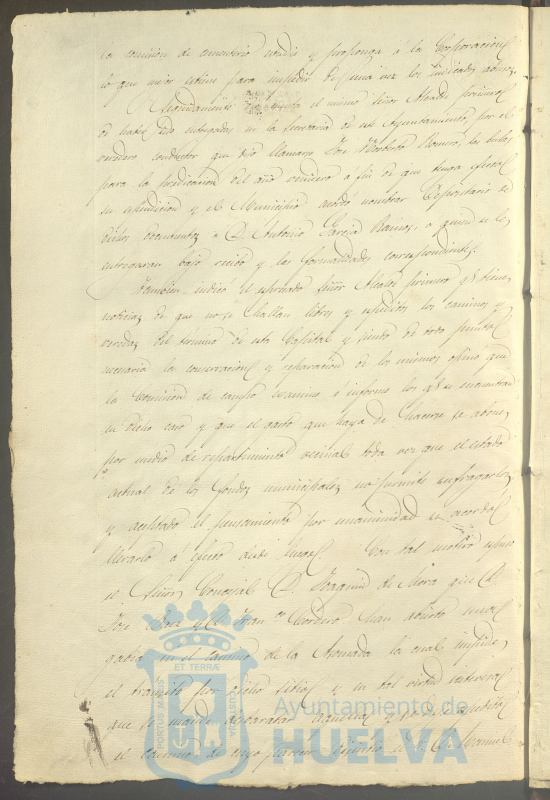 la comision de cementerio estudie y proponga á la Corporacion
lo que mejor estime para impedir de una vez los indicados abusos.
Seguidamente el mismo Señor Alcalde primero
de haber sido entregadas en la Secretaria de este Ayuntamiento, por el
veredero conductor que dijo llamarse José Norberto Romero, las bulas
para la predicacion del año venidero á fin de que tenga efecto
su espendicion y el Municipio acordó nombrar Depositario de
dichos documentos á D. Antonio Garcia Ramos, a quien se le
entregaran bajo recibo y las formalidades correspondientes.
Tambien indicó el espresado Señor Alcalde primero qe tiene
noticias de que no se hallan libres y espeditos los caminos y
veredas del termino de esta Capital y siendo de todo punto
necesaria la conservacion y reparacion de los mismos opina que
la Comision de campo examine é informe los qe se encuentran
en dicho caso y que el gasto que haya de hacerse se abone
por medio de repartimiento vecinal toda vez que el estado
actual de los fondos municipales no permite sufragarlo,
y aceptado el pensamiento por unanimidad se acordó
llevarlo á efecto desde luego. Con tal motivo espuso
el Señor Concejal D. Joaquin de Mora que D.
José y D. Franco Cordero han abierto una
gabia en el camino de la la cual impide
el transito por dicho sitio y en tal virtud interesa
que se mande desbaratar aquella y dejar espedito
el camino, de cuyo parecer disintió el Sr. D. Manuel
ET TERRÆ
PORTUS MARIS
CUSTODIA
Ayuntamiento de
HUELVA